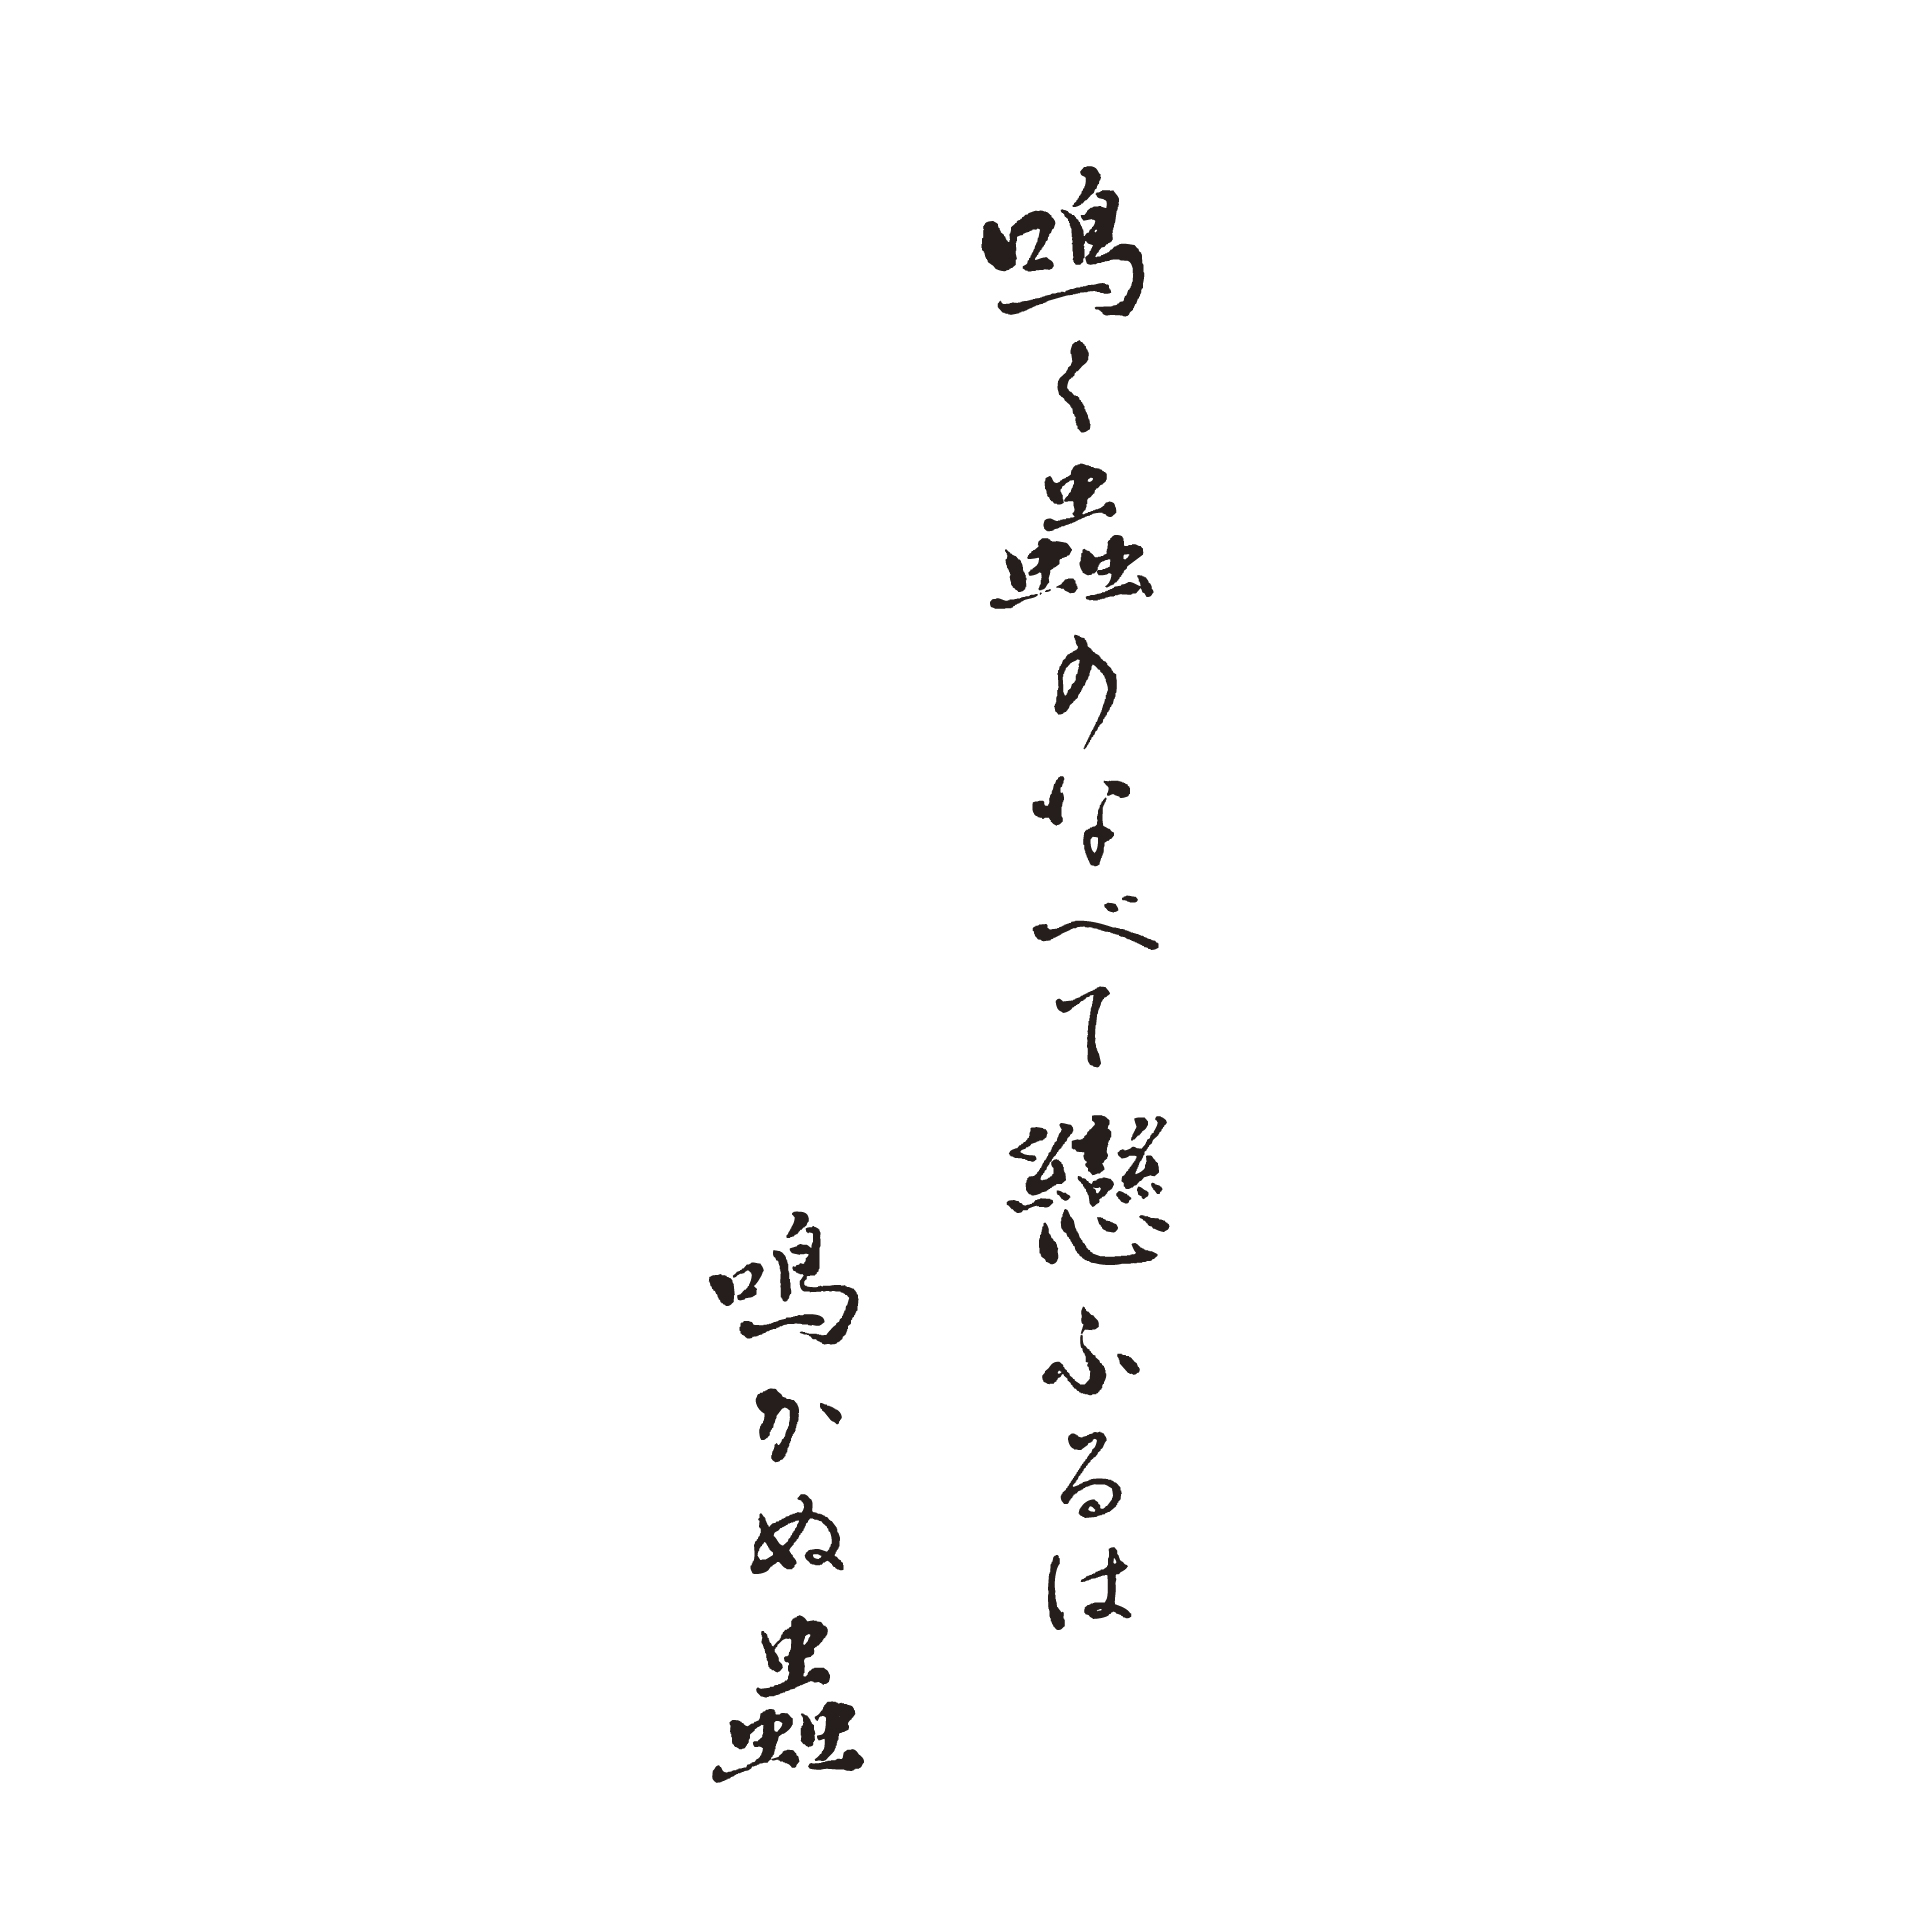 鳴く蟲のなべて戀ふるは
鳴かぬ蟲